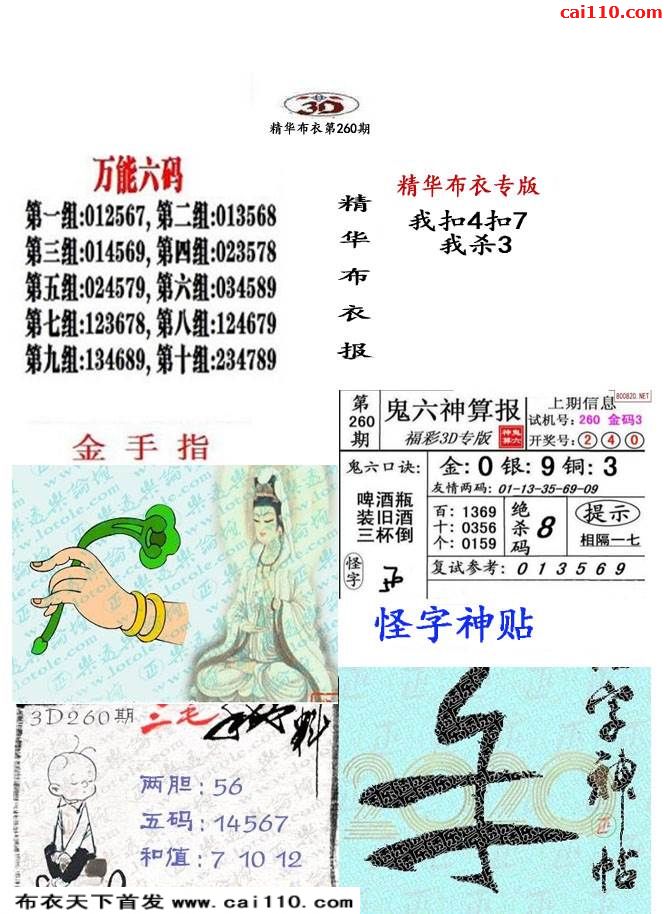 cai110.com
3D
精华布衣第260期
万能六码
第一组:012567, 第二组:013568
第三组:014569, 第四组:023578
第五组:024579, 第六组:034589
第七组:123678, 第八组:124679
第九组:134689, 第十组:234789
精华布衣报
精华布衣专版
我扣4扣7
我杀3
金手指
第260期
鬼六神算报
福彩3D专版
神鬼算六
上期信息
800820.NET
试机号: 260 金码3
开奖号: 2 4 0
鬼六口诀:
金: 0 银: 9 铜: 3
友情两码: 01-13-35-69-09
啤酒瓶
装旧酒
三杯倒
百: 1369
十: 0356
个: 0159
绝杀码
8
提示
相隔一七
怪字
复试参考: 0 1 3 5 6 9
怪字神贴
怪字神帖
2020
3D260期
三毛
两胆: 56
五码: 14567
和值: 7 10 12
布衣天下首发 www.cai110.com